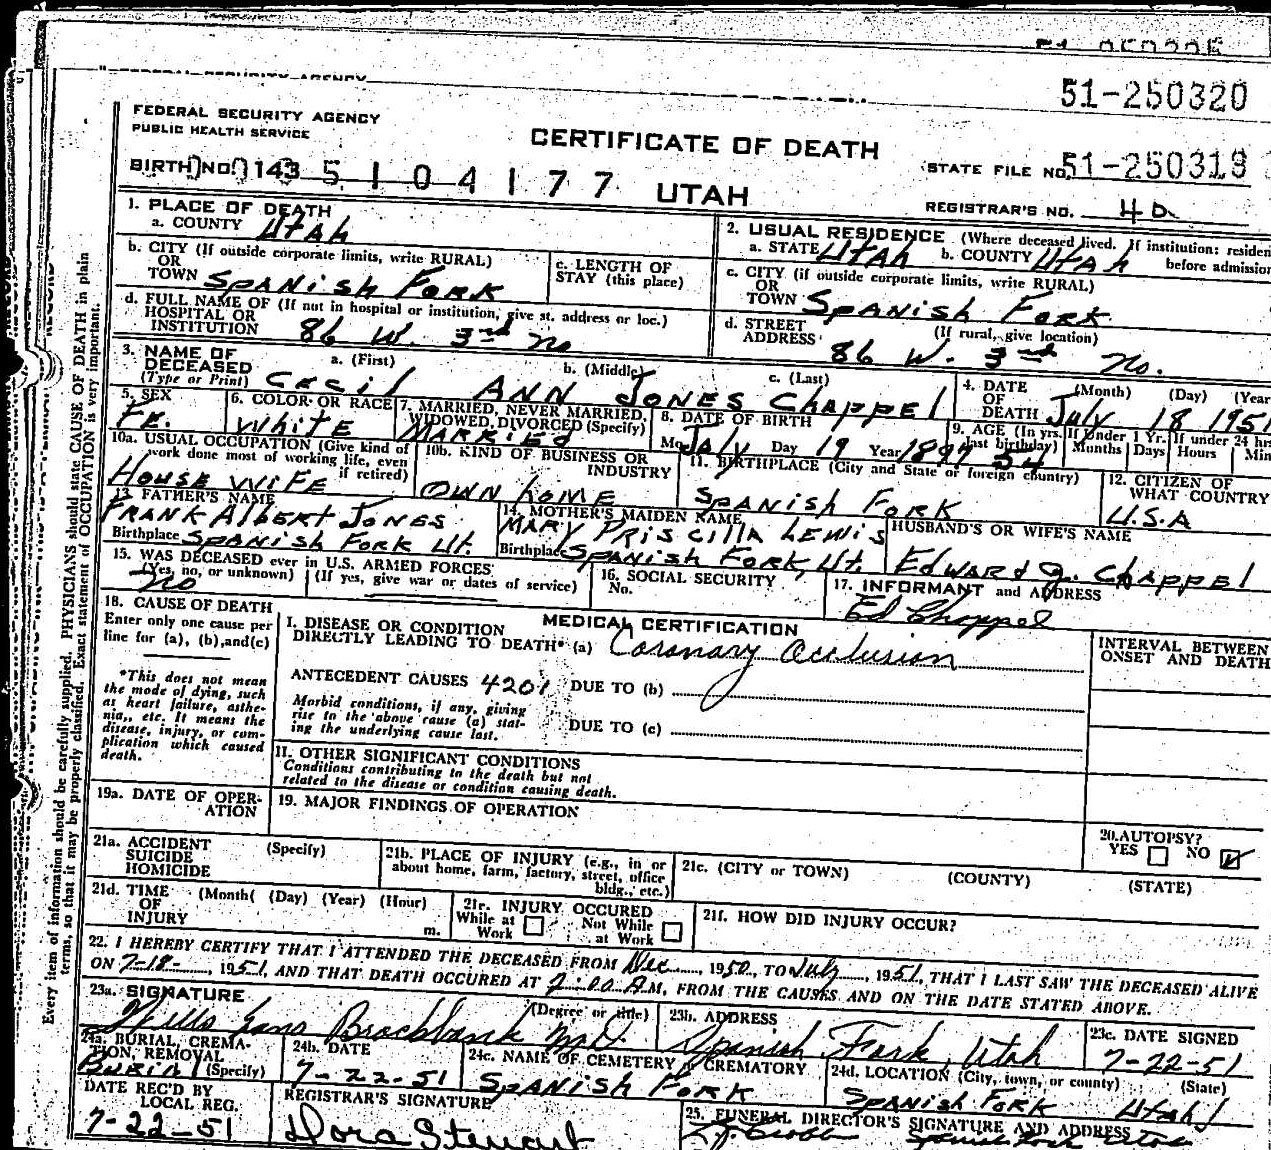 51-250320
FEDERAL SECURITY AGENCY
PUBLIC HEALTH SERVICE
CERTIFICATE OF DEATH
BIRTH NO. 143 5 1 0 4 1 7 7 UTAH
STATE FILE NO. 51-250319
REGISTRAR'S NO. 40
1. PLACE OF DEATH
a. COUNTY Utah
2. USUAL RESIDENCE (Where deceased lived. If institution: residen
a. STATE Utah b. COUNTY Utah before admission
b. CITY (If outside corporate limits, write RURAL)
OR
TOWN Spanish Fork
c. LENGTH OF
STAY (this place)
c. CITY (if outside corporate limits, write RURAL)
OR
TOWN Spanish Fork
d. FULL NAME OF (If not in hospital or institution, give st. address or loc.)
HOSPITAL OR
INSTITUTION 86 W. 3rd No
d. STREET (If rural, give location)
ADDRESS 86 W. 3rd No.
3. NAME OF
DECEASED
(Type or Print)
a. (First) b. (Middle) c. (Last)
Cecil Ann Jones Chappel
4. DATE
OF
DEATH
(Month) (Day) (Year
July 18 1951
5. SEX
Fe.
6. COLOR OR RACE
White
7. MARRIED, NEVER MARRIED,
WIDOWED, DIVORCED (Specify)
Married
8. DATE OF BIRTH
Mo. July Day 19 Year 1897
9. AGE (In yrs.
last birthday)
54
If Under 1 Yr.
Months Days
If under 24 hrs
Hours Min
10a. USUAL OCCUPATION (Give kind of
work done most of working life, even
if retired)
House wife
10b. KIND OF BUSINESS OR
INDUSTRY
Own home
11. BIRTHPLACE (City and State or foreign country)
Spanish Fork
12. CITIZEN OF
WHAT COUNTRY
U.S.A
13. FATHER'S NAME
Frank Albert Jones
Birthplace Spanish Fork Ut.
14. MOTHER'S MAIDEN NAME
Mary Priscilla Lewis
Birthplace Spanish Fork, Ut.
HUSBAND'S OR WIFE'S NAME
Edward J. Chappel
15. WAS DECEASED ever in U.S. ARMED FORCES
(Yes, no, or unknown) (If yes, give war or dates of service)
No
16. SOCIAL SECURITY
No.
17. INFORMANT and ADDRESS
Ed Chappel
18. CAUSE OF DEATH
Enter only one cause per
line for (a), (b), and (c)
*This does not mean
the mode of dying, such
as heart failure, asthe-
nia, etc. It means the
disease, injury, or com-
plication which caused
death.
MEDICAL CERTIFICATION
I. DISEASE OR CONDITION
DIRECTLY LEADING TO DEATH* (a) Coronary Occlusion
ANTECEDENT CAUSES 4201 DUE TO (b)
Morbid conditions, if any, giving
rise to the above cause (a) stat-
ing the underlying cause last.
DUE TO (c)
II. OTHER SIGNIFICANT CONDITIONS
Conditions contributing to the death but not
related to the disease or condition causing death.
INTERVAL BETWEEN
ONSET AND DEATH
19a. DATE OF OPER-
ATION
19. MAJOR FINDINGS OF OPERATION
20. AUTOPSY?
YES NO
21a. ACCIDENT (Specify)
SUICIDE
HOMICIDE
21b. PLACE OF INJURY (e.g., in or
about home, farm, factory, street, office
bldg., etc.)
21c. (CITY OR TOWN) (COUNTY) (STATE)
21d. TIME (Month( (Day) (Year) (Hour)
OF
INJURY m.
21e. INJURY OCCURED
While at Work Not While at Work
21f. HOW DID INJURY OCCUR?
22. I HEREBY CERTIFY THAT I ATTENDED THE DECEASED FROM Dec, 1950, TO July, 1951, THAT I LAST SAW THE DECEASED ALIVE
ON 7-18-, 1951, AND THAT DEATH OCCURED AT 2:00 A M, FROM THE CAUSES AND ON THE DATE STATED ABOVE.
23a. SIGNATURE (Degree or title)
Brockbank M.D.
23b. ADDRESS
Spanish Fork, Utah
23c. DATE SIGNED
7-22-51
24a. BURIAL, CREMA-
TION, REMOVAL
(Specify)
Burial
24b. DATE
7-22-51
24c. NAME OF CEMETERY OR CREMATORY
Spanish Fork
24d. LOCATION (City, town, or county) (State)
Spanish Fork Utah
DATE REC'D BY
LOCAL REG.
7-22-51
REGISTRAR'S SIGNATURE
Dora Stewart
25. FUNERAL DIRECTOR'S SIGNATURE AND ADDRESS
Spanish Fork Utah
Every item of information should be carefully supplied. PHYSICIANS should state CAUSE OF DEATH in plain
terms, so that it may be properly classified. Exact statement of OCCUPATION is very important.